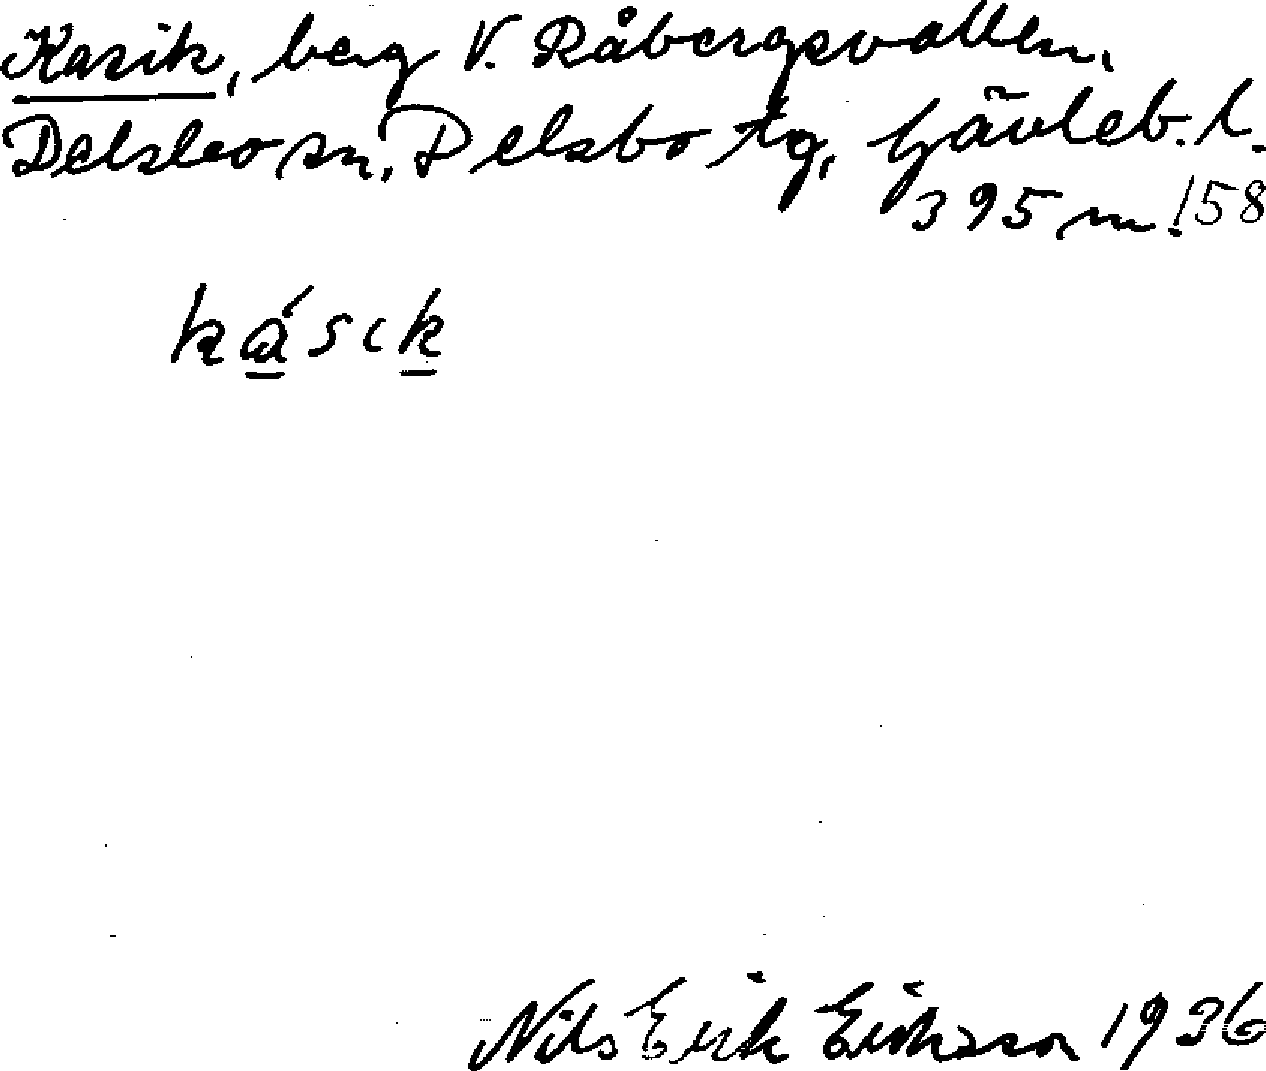 Kasik, berg V. Råbergsvallen,
Delsbo sn, Delsbo tg, Gävleb. l.
395 m. 158
kásık
Nils Erik Eriksson 1936